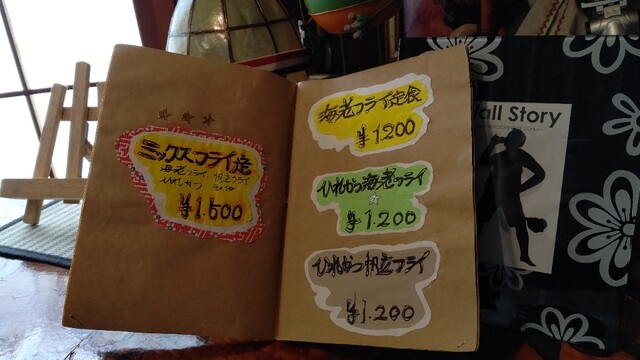 ミックスフライ定
海老フライ、帆立フライ
ひれかつ
¥1.500
海老フライ定食
¥1200
ひれかつ海老フライ
¥1.200
ひれかつ帆立フライ
¥1.200
Wall Story